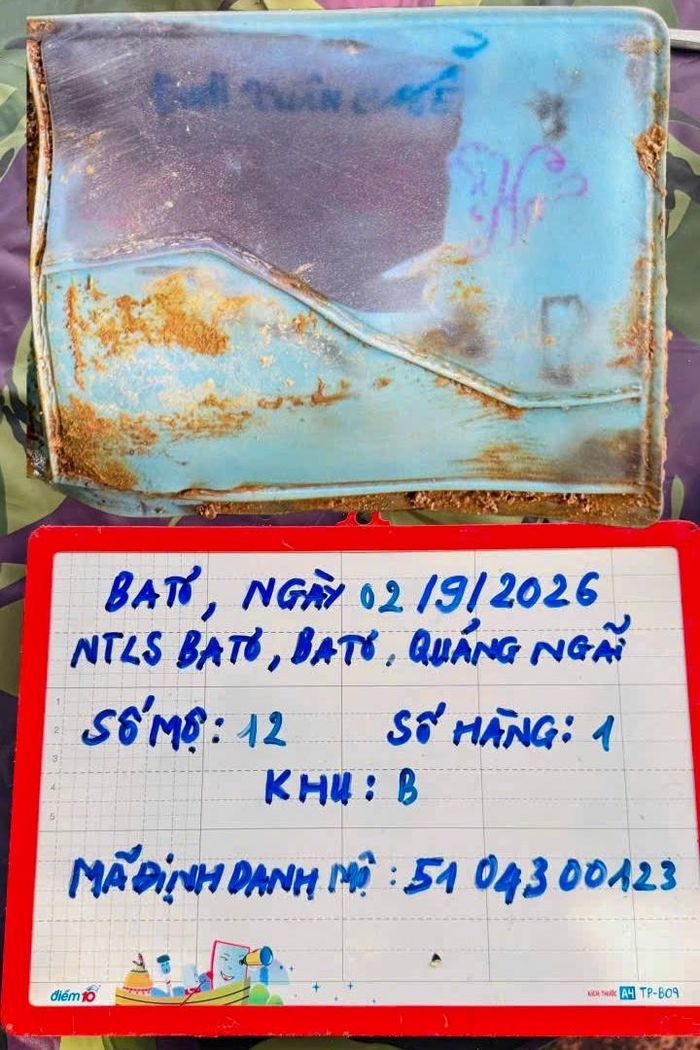 BATƠ, NGÀY 02/9/2026
NTLS BATƠ, BATƠ, QUẢNG NGÃI
SỐ MỘ: 12 SỐ HÀNG: 1
KHU: B
MÃ ĐỊNH DANH MỘ: 51 043 00123
điểm 10
KÍCH THƯỚC A4 TP-B09